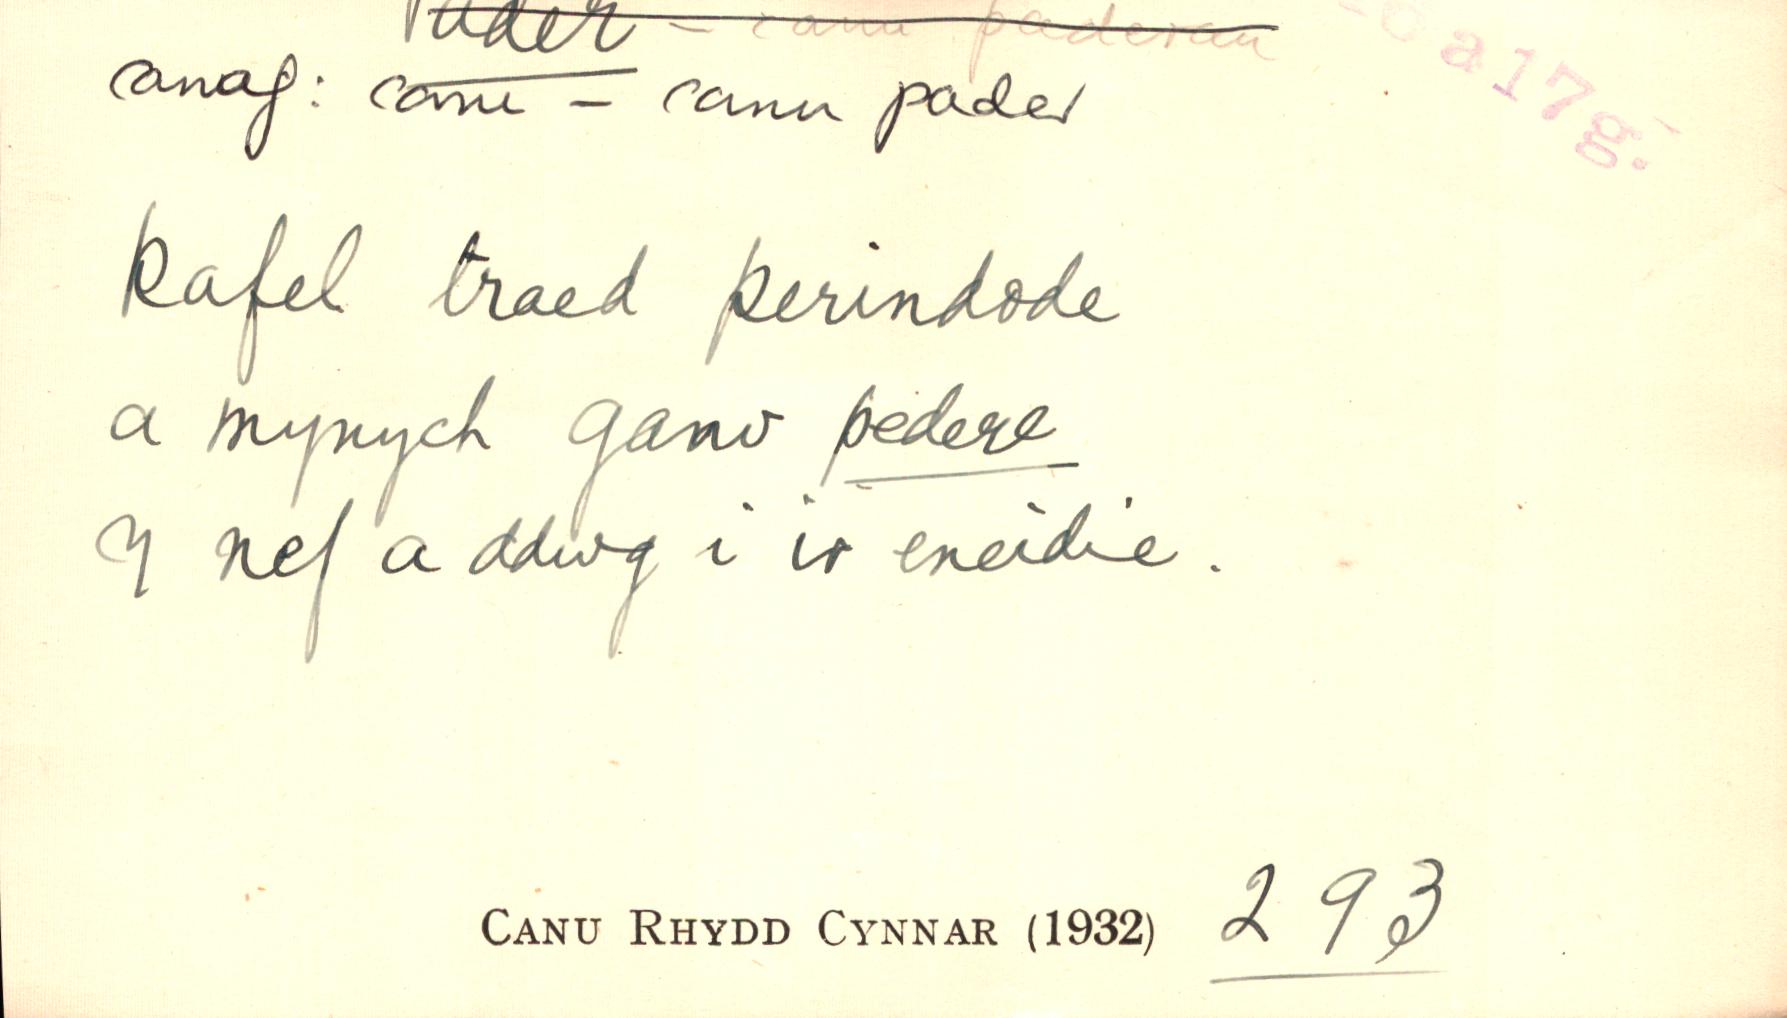 Pader – canu paderau
a17g.
canag: canu – canu pader
kafel traed perindode
a mynych ganv pedere
y nef a ddwg i ir eneidie.
CANU RHYDD CYNNAR (1932) 293